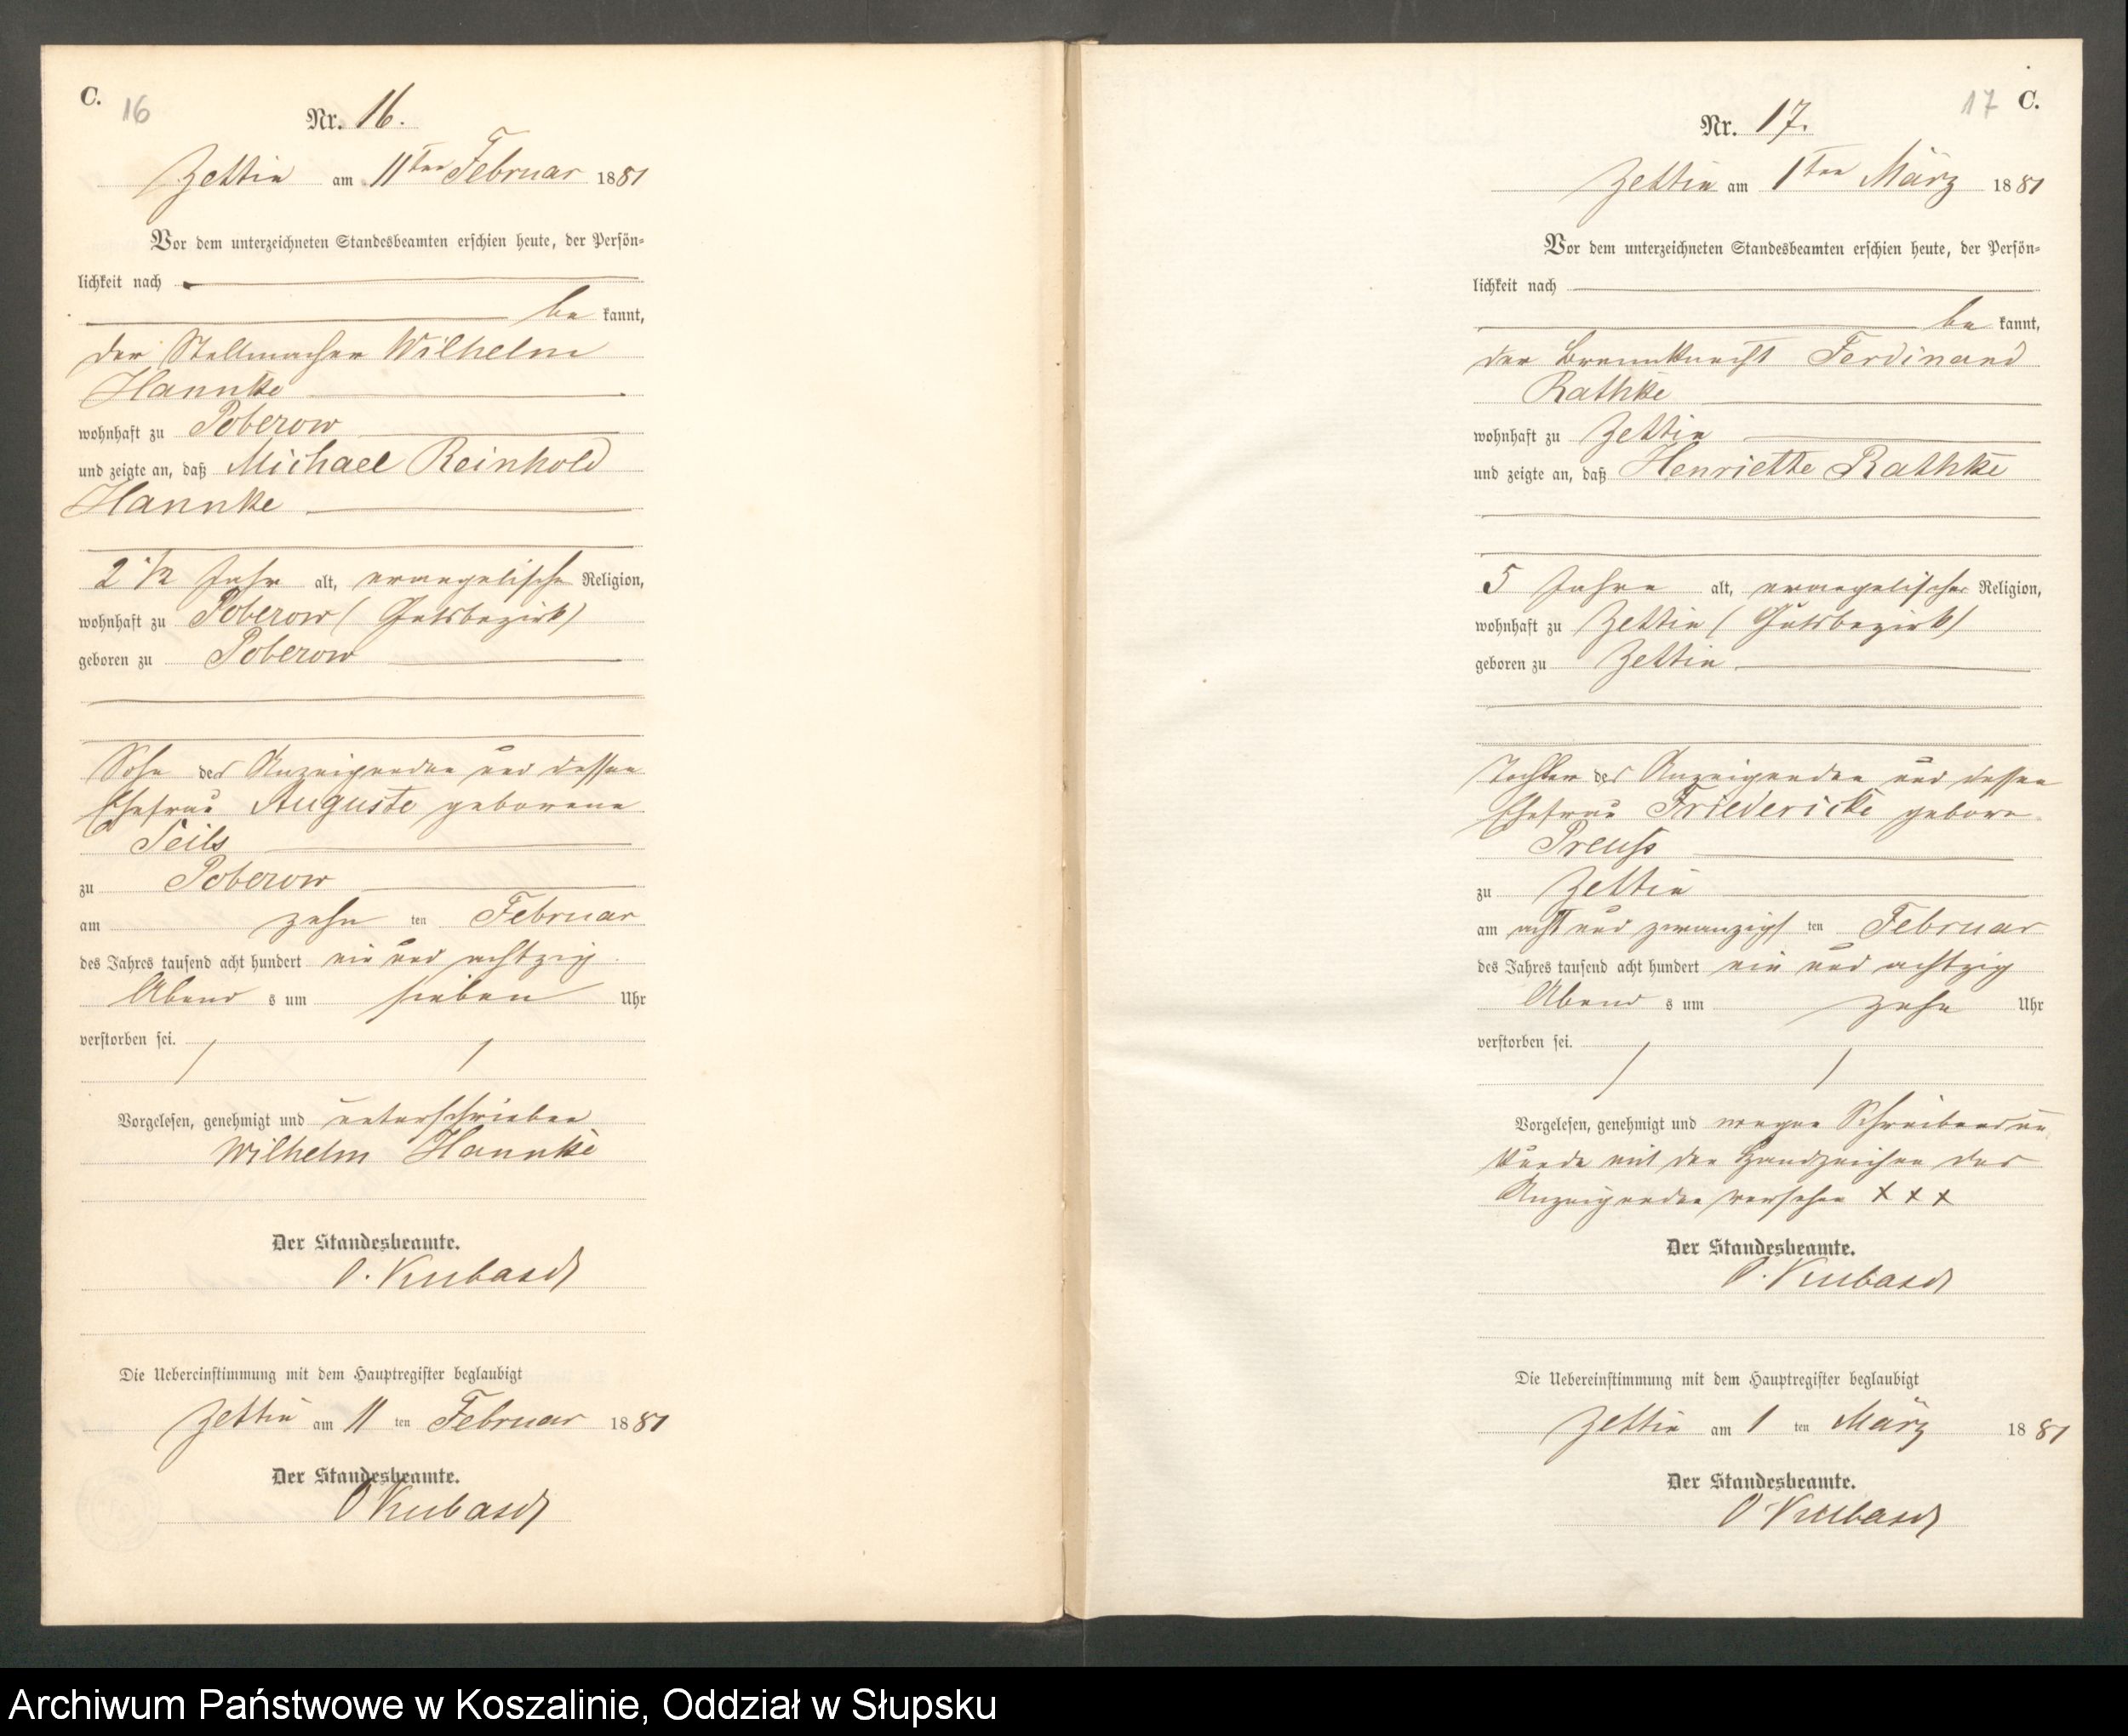 C. 16
Nr. 16.
Zettin am 11ten Februar 1881
Vor dem unterzeichneten Standesbeamten erschien heute, der Persön-
lichkeit nach
be kannt,
der Stellmacher Wilhelm
Hannke
wohnhaft zu Poberow
und zeigte an, daß Michael Reinhold
Hannke
2 1/2 Jahr alt, evangelische Religion,
wohnhaft zu Poberow (Gutsbezirk)
geboren zu Poberow
Sohn des Anzeigenden und dessen
Ehefrau Auguste geborene
Seils
zu Poberow
am zehn ten Februar
des Jahres tausend acht hundert ein und achtzig
Abend s um sieben Uhr
verstorben sei.
Vorgelesen, genehmigt und unterschrieben
Wilhelm Hannke
Der Standesbeamte.
O. Kubasch
Die Uebereinstimmung mit dem Hauptregister beglaubigt
Zettin am 11 ten Februar 1881
Der Standesbeamte.
O Kubasch
17 C.
Nr. 17.
Zettin am 1ten März 1881
Vor dem unterzeichneten Standesbeamten erschien heute, der Persön-
lichkeit nach
be kannt,
der Brennknecht Ferdinand
Rathke
wohnhaft zu Zettin
und zeigte an, daß Henriette Rathke
5 Jahre alt, evangelischer Religion,
wohnhaft zu Zettin (Gutsbezirk)
geboren zu Zettin
Tochter des Anzeigenden und dessen
Ehefrau Friedericke gebore
Preuß
zu Zettin
am acht und zwanzigs ten Februar
des Jahres tausend acht hundert ein und achtzig
Abend s um zehn Uhr
verstorben sei.
Vorgelesen, genehmigt und wegen Schreibensun
kunde mit den Handzeichen des
Anzeigenden versehen x x x
Der Standesbeamte.
O. Kubasch
Die Uebereinstimmung mit dem Hauptregister beglaubigt
Zettin am 1 ten März 1881
Der Standesbeamte.
O Kubasch
Archiwum Państwowe w Koszalinie, Oddział w Słupsku